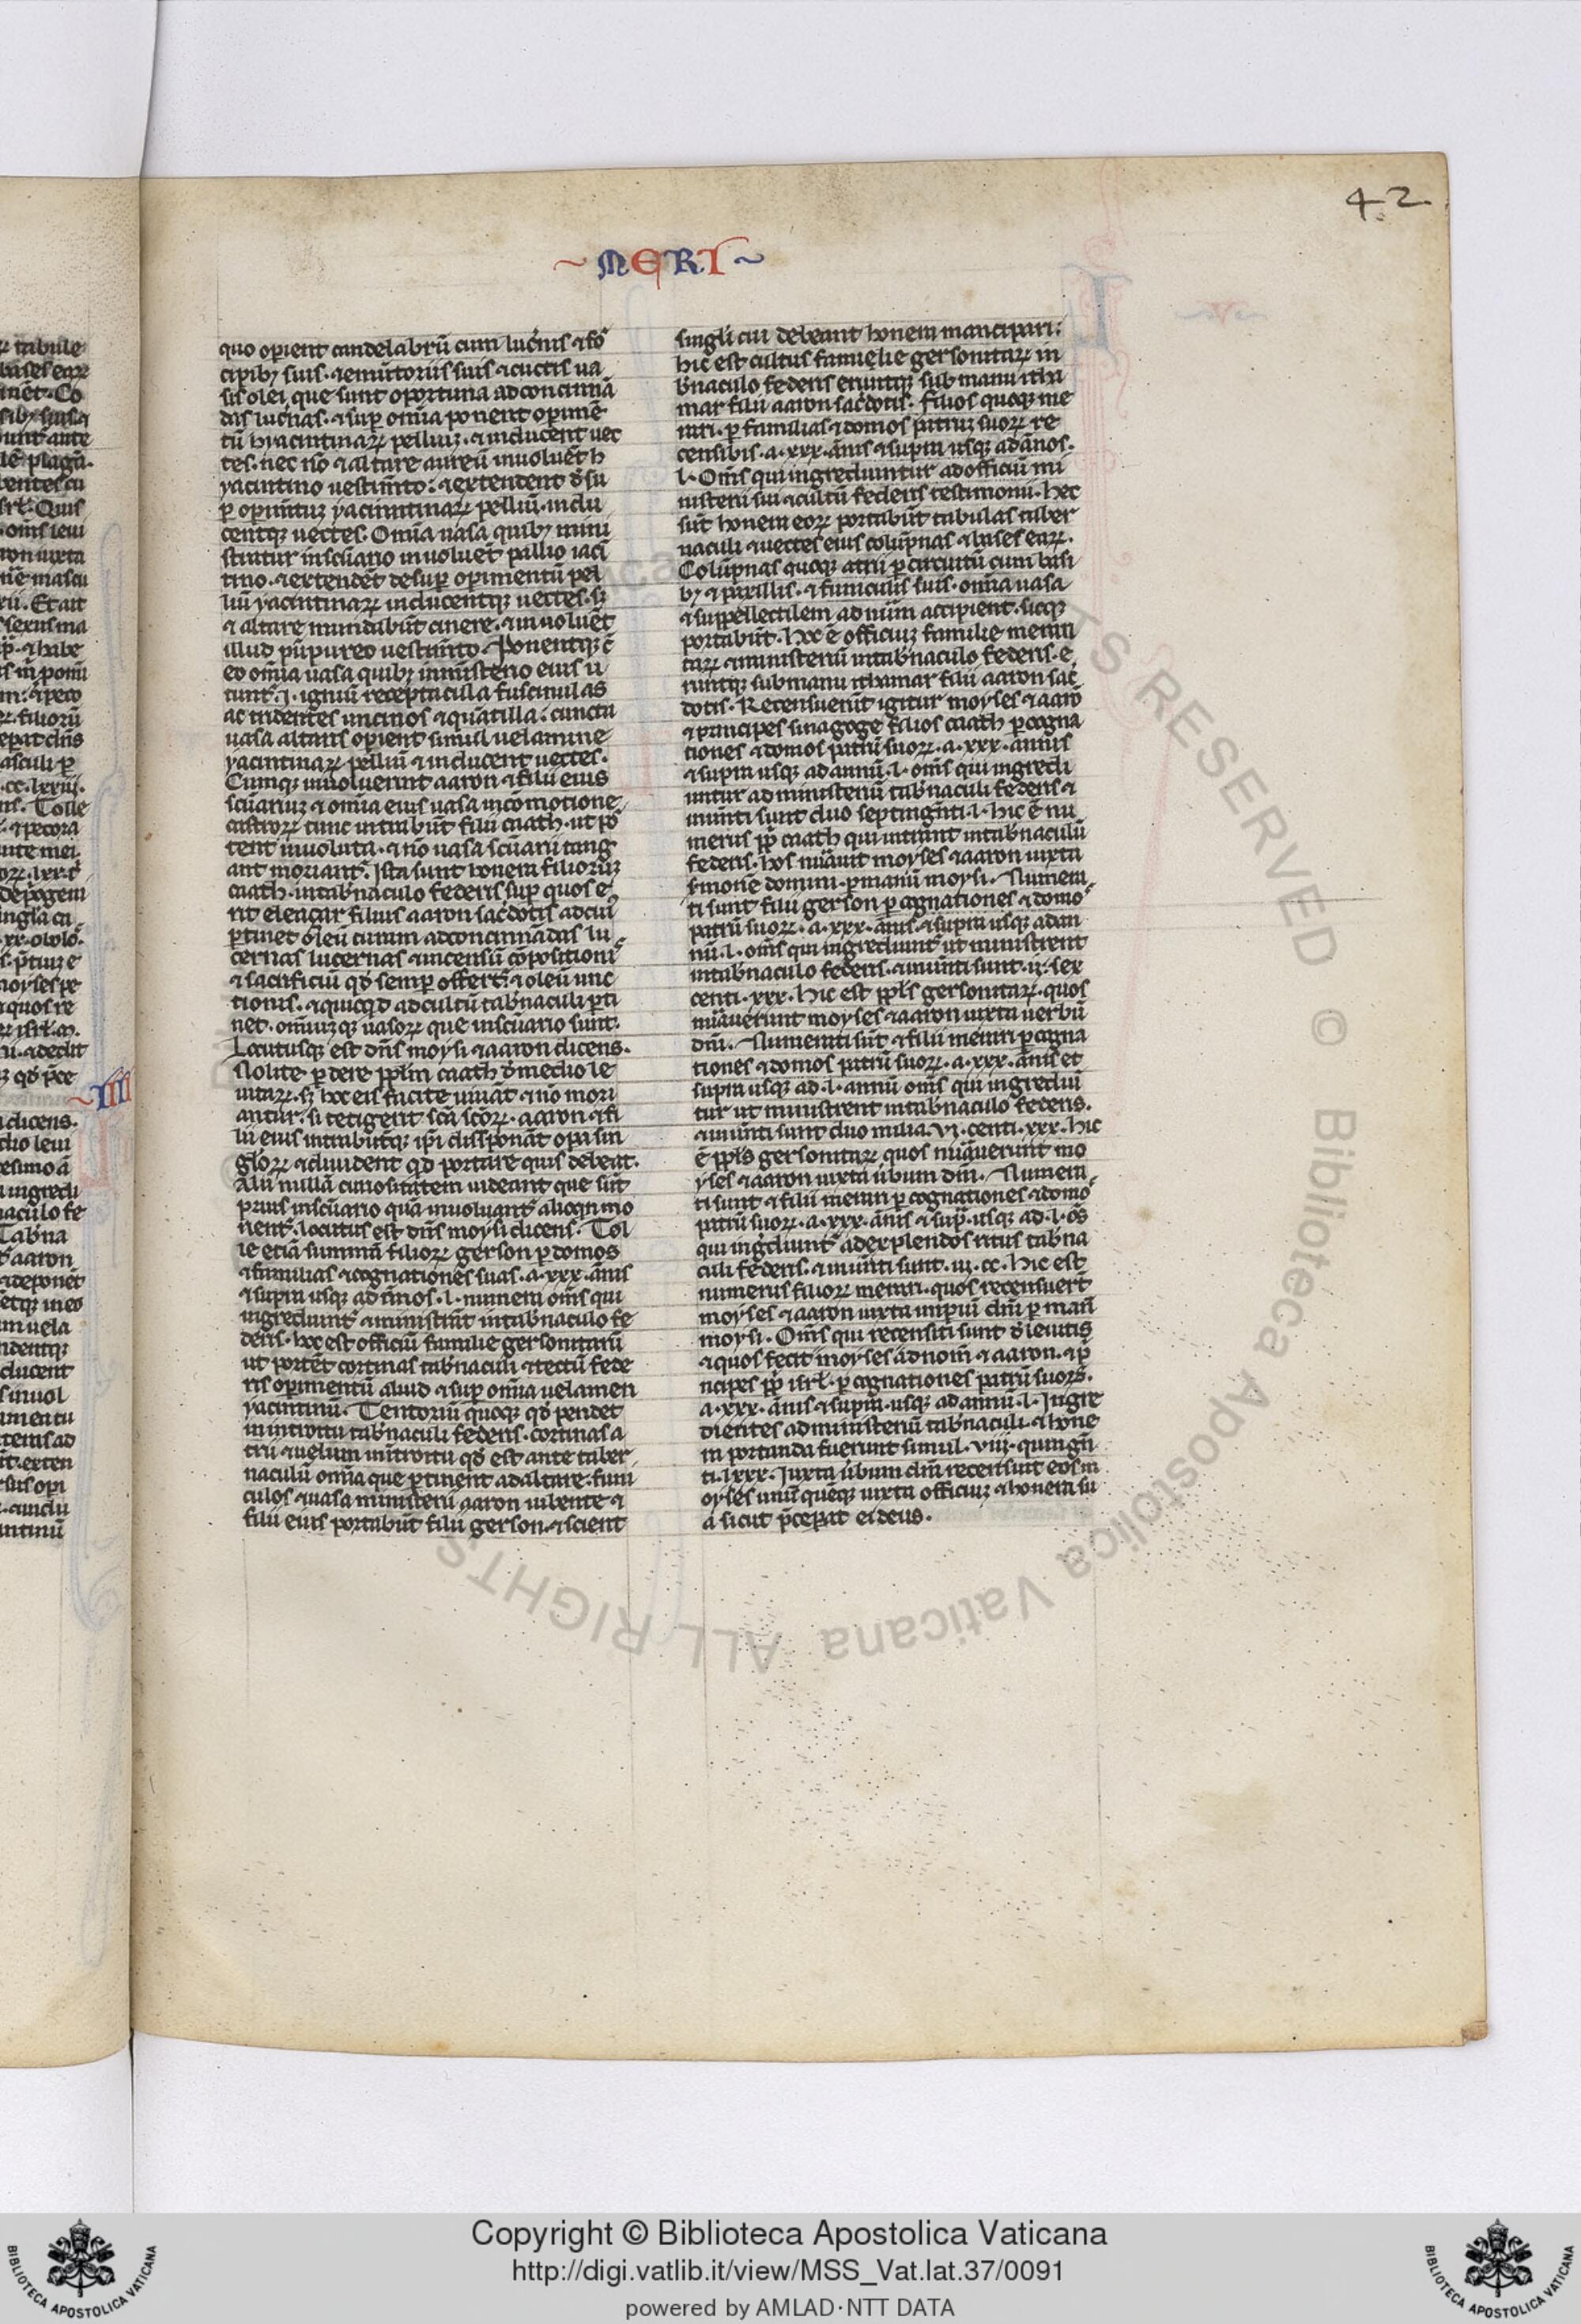 42
~ MERI ~
quo operient candelabrū cum luc̄nis ⁊ for
cipib; suis. ⁊ emūtoriis suis ⁊ cūctis ua
sis olei, que sunt oportuna ad concinnā
das luc̄nas. ⁊ sup̄ omīa ponent operimē
tū hyacintinaꝝ pelliuꝫ. ⁊ inducent uec
tes. nec nō ⁊ altare aureū inuoluēt h
yacintino uestim̄to: ⁊ extendent d̄ su
p̄ operim̄tuꝫ yacinntinaꝝ pelliū. indu
centq; uectes. Omīa uasa quib; mini
stratur in sc̄uario inuoluēt pallio iaci
tino. ⁊ extendēt desup̄ operimentū pel
liū yacintinaꝝ inducentq; uectes. sꝫ
⁊ altare mundabūt cinere. ⁊ inuoluēt
illud purpureo uestim̄to. Ponentq; c̄
eo omīa uasa quib; in minist̄io eius u
tunt̄. .i. igniū receptacula fuscinulas
ac tridentes uncinos ⁊ quatilla: cuncta
uasa altaris operient simul uelamine
yacintinaꝝ pelliū ⁊ inducent uectes.
Cumq; inuoluerint aaron ⁊ filii eius
sc̄uariuꝫ ⁊ omīa eius uasa in cōmotione
castroꝝ tunc intrabūt filii caath. ut por
tent inuoluta. ⁊ nō uasa sc̄uarii tang
ant moriant̄. Ista sunt honera filioruꝫ
caath. in tab̄naculo federis sup̄ quos e
rit eleaçar filius aaron sac̄dotis ad cui
ꝑtinet ōleū curam ad concinnādas lu
cernas lucernas ⁊ incensū cōpositionis
⁊ sacrificiū qd̄ semp̄ offert̄ ⁊ oleū unc
tionis. ⁊ quicq̄d ad cultū tab̄naculi ꝑti
net. omīuꝫq; uasoꝝ que in sc̄uario sunt.
Locutusq; est dn̄s moysi ⁊ aaron dicens.
Nolite ꝑdere pp̄lm caath d̄ medio le
uitaꝝ. sꝫ hoc eis facite uiuāt ⁊ nō mori
antur. si tetigerit sc̄a sc̄oꝝ. aaron ⁊ fi
lii eius intrabūtq; ip̄i disponāt op̄a sin
gloꝝ ⁊ diuident qd̄ portare quis debeat.
Alii nullā curiositatem uideant que sūt
prius in sc̄uario quā inuoluant̄ alioqn̄ mo
rient̄. locutus est dn̄s moysi dicens. Tol
le etiā summā filioꝝ gerson ꝑ domos
⁊ familias ⁊ cognationes suas. a .xxx. ānis
⁊ supra usq; ad ānos .l. numera om̄s qui
ingrediunt̄ ⁊ ministrāt in tab̄naculo fe
deris. hoc est officiū familie gersonitarū
ut portēt cortinas tab̄naculi ⁊ tectū fede
ris operimentū aliud ⁊ sup̄ omīa uelamen
yacintinū. Tentoriū quoq; qd̄ pendet
in introitu tab̄naculi federis. cortinas a
trii ⁊ uelum in introitu qd̄ est ante taber
naculū omīa que ꝑtinent ad altare. funi
culos ⁊ uasa ministerii aaron iubente ⁊
filii eius portabūt filii gerson. ⁊ scient
singli cui debeant honera mancipari:
hic est cultus famielie gersonitaꝝ in
tab̄naculo federis eruntq; sub manu itha
mar filii aaron sac̄dotis. filios quoq; me
rari. ꝑ familias ⁊ domos patruꝫ suoꝝ re
censibis. a .xxx. ānis ⁊ supra usq; ad ānos.
l. Om̄s qui ingrediuntur ad officiū mi
nisterii sui ⁊ cultū federis testimonii. hec
sūt honera eoꝝ portabūt tabulas taber
naculi ⁊ uectes eius colūpnas ⁊ bases eaꝝ.
Colūpnas quoq; atrii ꝑ circuitū cum basi
b; ⁊ paxillis. ⁊ funiculis suis. omīa uasa
⁊ suppellectilem ad num̄ accipient. sicq;
portabūt. hoc ē officiuꝫ familie merari
taꝝ ⁊ ministeriū in tab̄naculo federis. e
runtq; sub manu ithamar filii aaron sac̄
dotis. Recensuerūt igitur moyses ⁊ aarō
⁊ principes sinagoge filios caath ꝑ cogna
tiones ⁊ domos patrū suoꝝ. a .xxx. annis
⁊ supra usq; ad annū. l. om̄s qui ingredi
untur ad ministeriū tab̄naculi federis ⁊
inuēti sunt duo septingēti. l. hic ē nu
merus pp̄li caath qui intrant in tab̄naculū
federis. hos nūauit moyses ⁊ aaron iuxta
s̄monē domini. ꝑ manū moysi. Numera
ti sunt filii gerson ꝑ cognationes ⁊ domos
patrū suoꝝ. a .xxx. ānis. ⁊ supra usq; ad an
nū. l. om̄s qui ingrediunt̄ ut ministrent
in tab̄naculo federis. ⁊ inuēti sunt .ij. sex
centi .xxx. hic est pp̄ls gersonitaꝝ. quos
nūauerunt moyses ⁊ aaron iuxta uerbū
dn̄i. Numerati sūt ⁊ filii merari ꝑ cogna
tiones ⁊ domos patrū suoꝝ. a .xxx. ānis et
supra usq; ad .l. annū om̄s qui ingrediū
tur ut ministrent in tab̄naculo federis.
⁊ inuēti sunt duo milia .vi. centi .xxx. hic
ē pp̄ls gersonitaꝝ quos nūauerunt mo
yses ⁊ aaron iuxta ūbum dn̄i. Numera
ti sunt ⁊ filii merari ꝑ cognationes ⁊ domos
patrū suoꝝ. a .xxx. ānis ⁊ sup̄. usq; ad .l. om̄s
qui ingrediunt̄ ad explendos ritus tab̄na
culi federis. ⁊ inuēti sunt .iij. cc. hic est
numerus filioꝝ merari. quos recensuerūt
moyses ⁊ aaron iuxta imp̄iū dn̄i ꝑ manū
moysi. Om̄s qui recensiti sunt d̄ leuitis
⁊ quos fecit moyses ad nom̄ ⁊ aaron. ⁊ pri
ncipes pp̄li isrl̄. ꝑ cognationes patrū suoꝝ.
a .xxx. ānis ⁊ supra. usq; ad annū. l. Ingre
dientes ad ministeriū tab̄naculi. ⁊ hone
ra portanda fuerunt simul. viij. quingn̄
ti. lxxx. Iuxta ūbum dn̄i recensuit eos m
oyses unū quēq; iuxta officiuꝫ ⁊ honera su
a sicut p̄cepat ei deus.
~ III
Copyright © Biblioteca Apostolica Vaticana
http://digi.vatlib.it/view/MSS_Vat.lat.37/0091
powered by AMLAD·NTT DATA
BIBLIOTECA APOSTOLICA VATICANA
BIBLIOTECA APOSTOLICA VATICANA
© Biblioteca Apostolica Vaticana ALL RIGHTS RESERVED